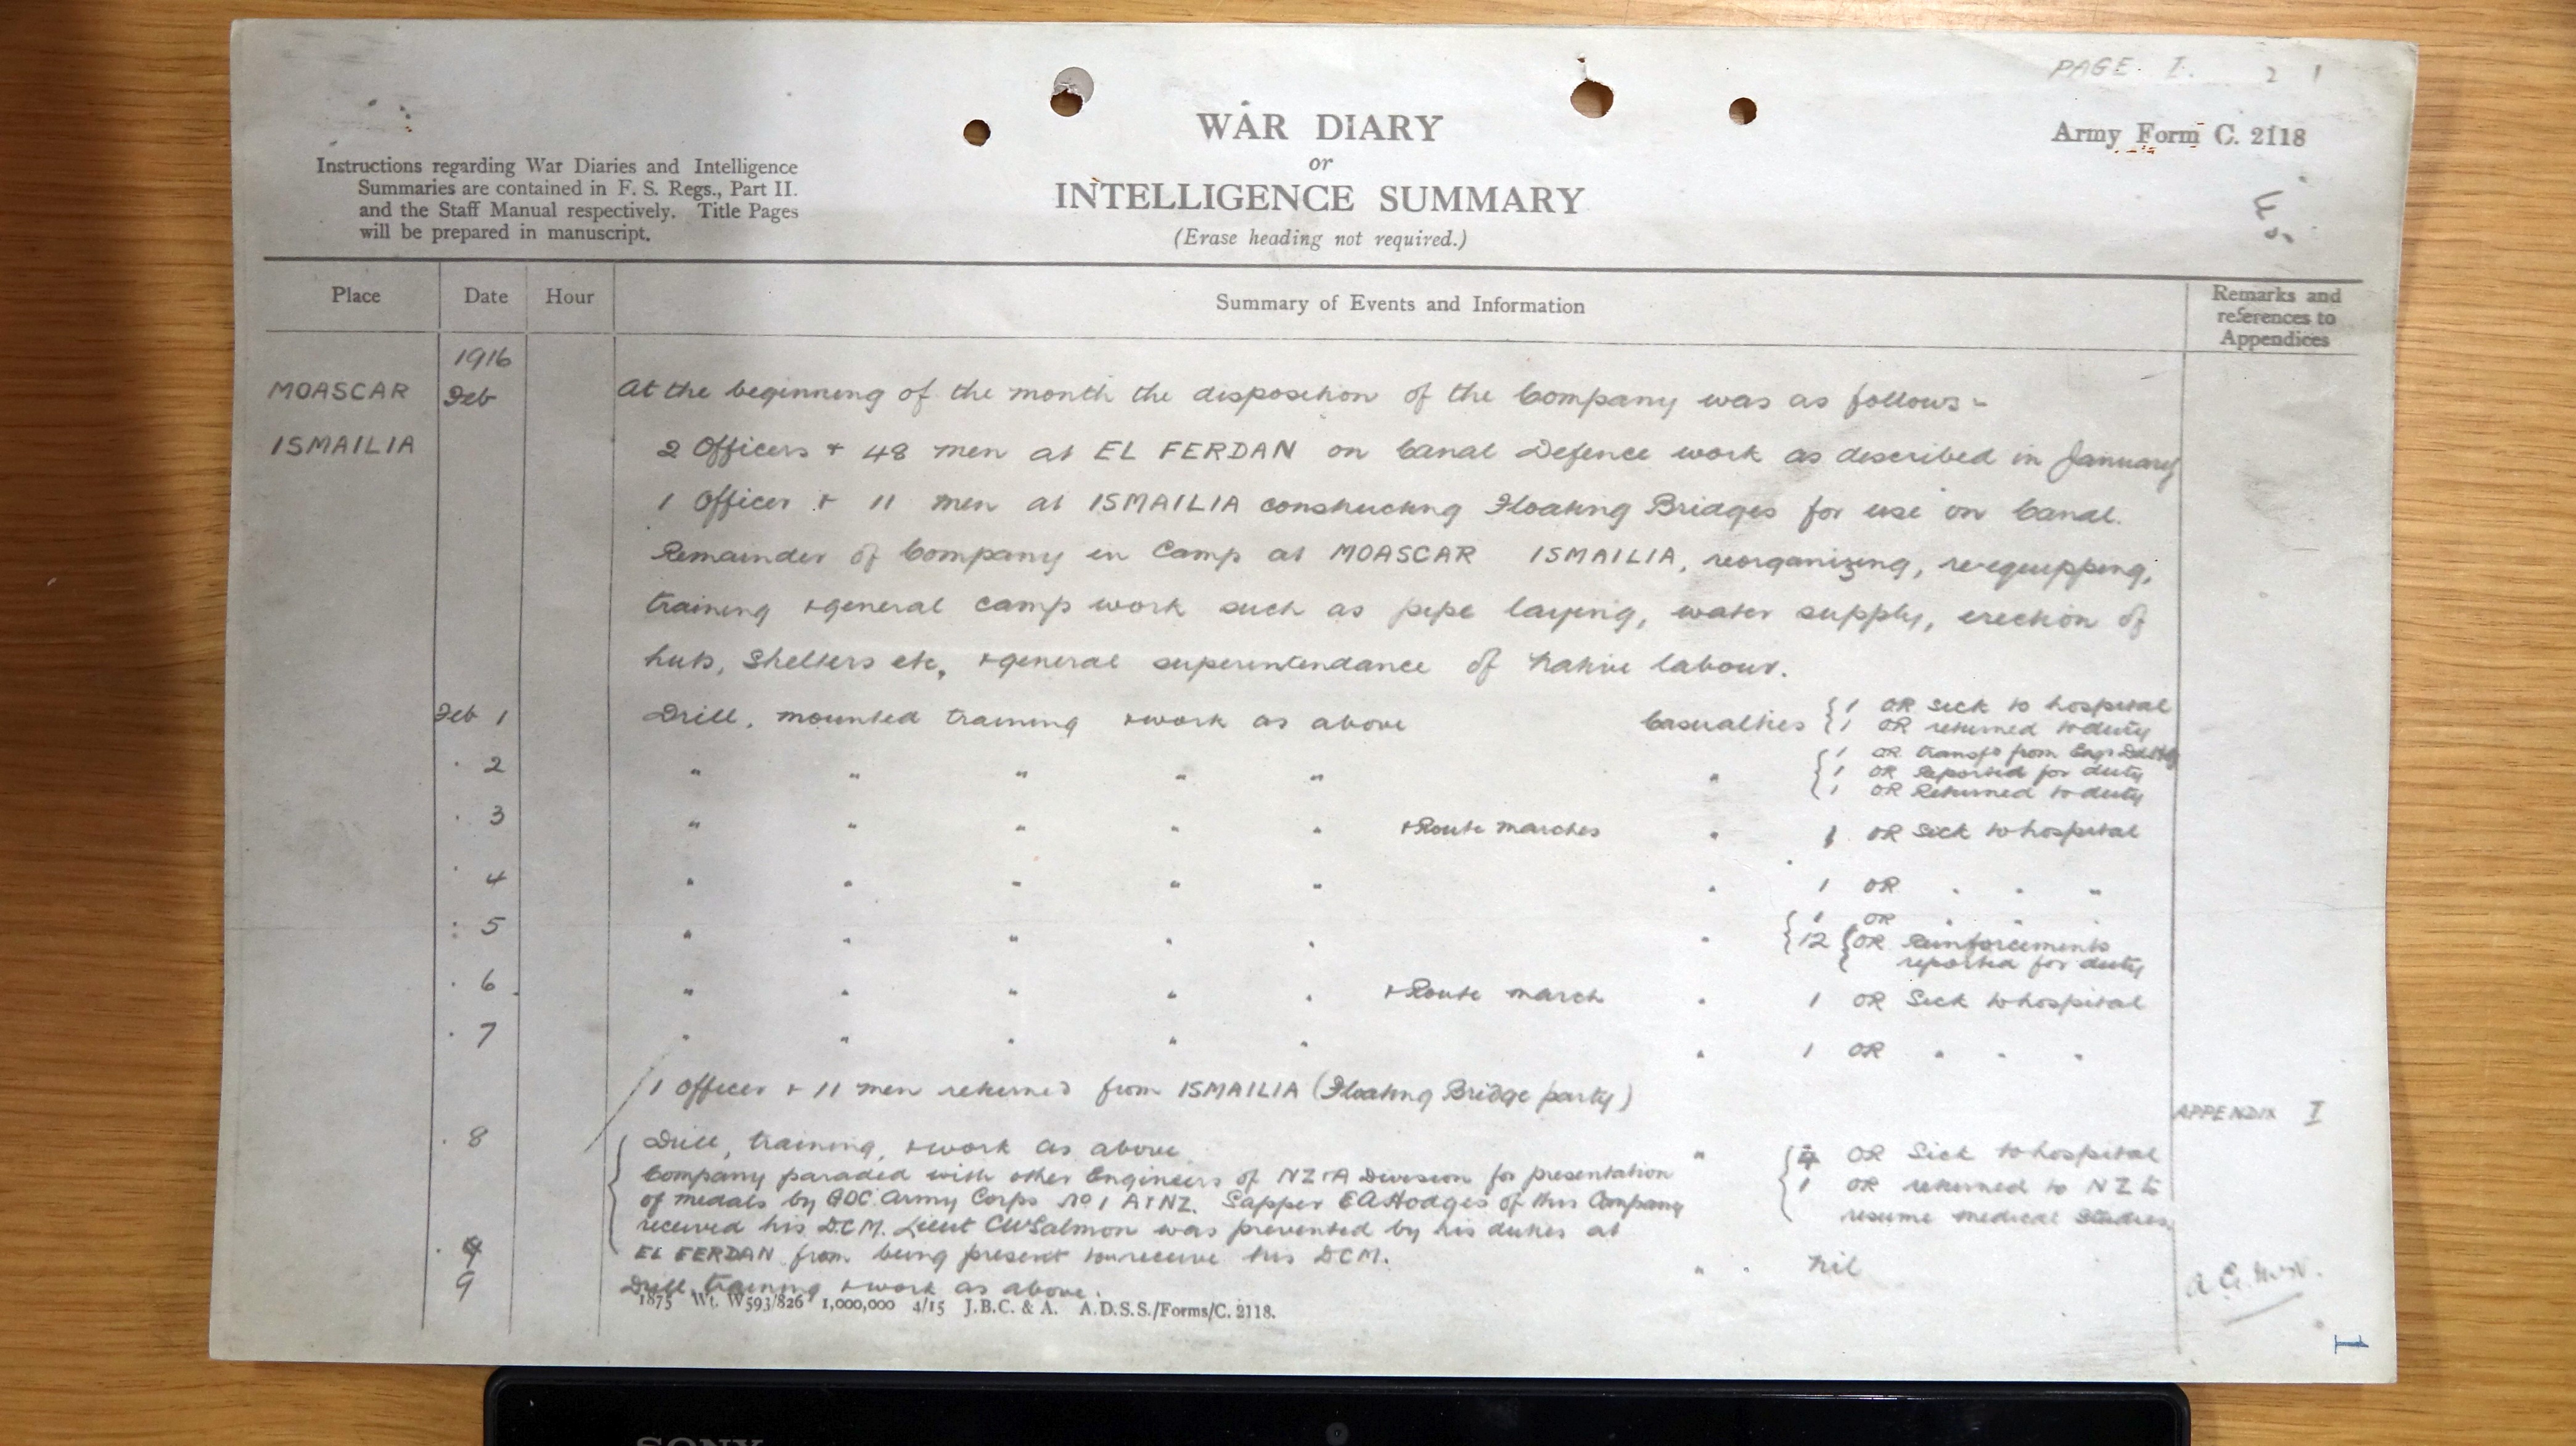 PAGE. I. 2 1
WAR DIARY
or
INTELLIGENCE SUMMARY
(Erase heading not required.)
Army Form C. 2118
Instructions regarding War Diaries and Intelligence
Summaries are contained in F. S. Regs., Part II.
and the Staff Manual respectively. Title Pages
will be prepared in manuscript.
Place Date Hour Summary of Events and Information Remarks and
references to
Appendices
1916
MOASCAR Feb At the beginning of the month the disposition of the Company was as follows -
ISMAILIA 2 Officers + 48 men at EL FERDAN on Canal Defence work as described in January
1 Officer + 11 men at ISMAILIA constructing Floating Bridges for use on Canal.
Remainder of Company in Camp at MOASCAR ISMAILIA, reorganizing, re-equipping,
training + general camp work such as pipe laying, water supply, erection of
huts, shelters etc, + general superintendance of native labour.
Feb 1 Drill, mounted training + work as above Casualties { 1 OR Sick to hospital
{ 1 OR returned to duty
" 2 " " " " " " { 1 OR transfd from
{ 1 OR Reported for duty
{ 1 OR Returned to duty
" 3 " " " " " + Route marches " 1 OR Sick to hospital
" 4 " " " " " " 1 OR " " "
" 5 " " " " " " { 1 OR " " "
{ 12 { OR Reinforcements
{ reported for duty
" 6 " " " " " + Route march " 1 OR Sick to hospital
" 7 " " " " " " 1 OR " " "
1 Officer + 11 men returned from ISMAILIA (Floating Bridge party)
APPENDIX I
" 8 { Drill, training, + work as above " { 4 OR Sick to hospital
Company paraded with other Engineers of NZ+A Division for presentation { 1 OR returned to NZ to
of medals by GOC Army Corps No 1 A+NZ. Sapper EA Hodges of this Company resume medical studies
received his DCM. Lieut CW Salmon was prevented by his duties at
" 9 EL FERDAN from being present to receive his DCM.
9 Drill, training + work as above. " " nil
1875 Wt. W593/826 1,000,000 4/15 J.B.C. & A. A.D.S.S./Forms/C. 2118.
1
SONY